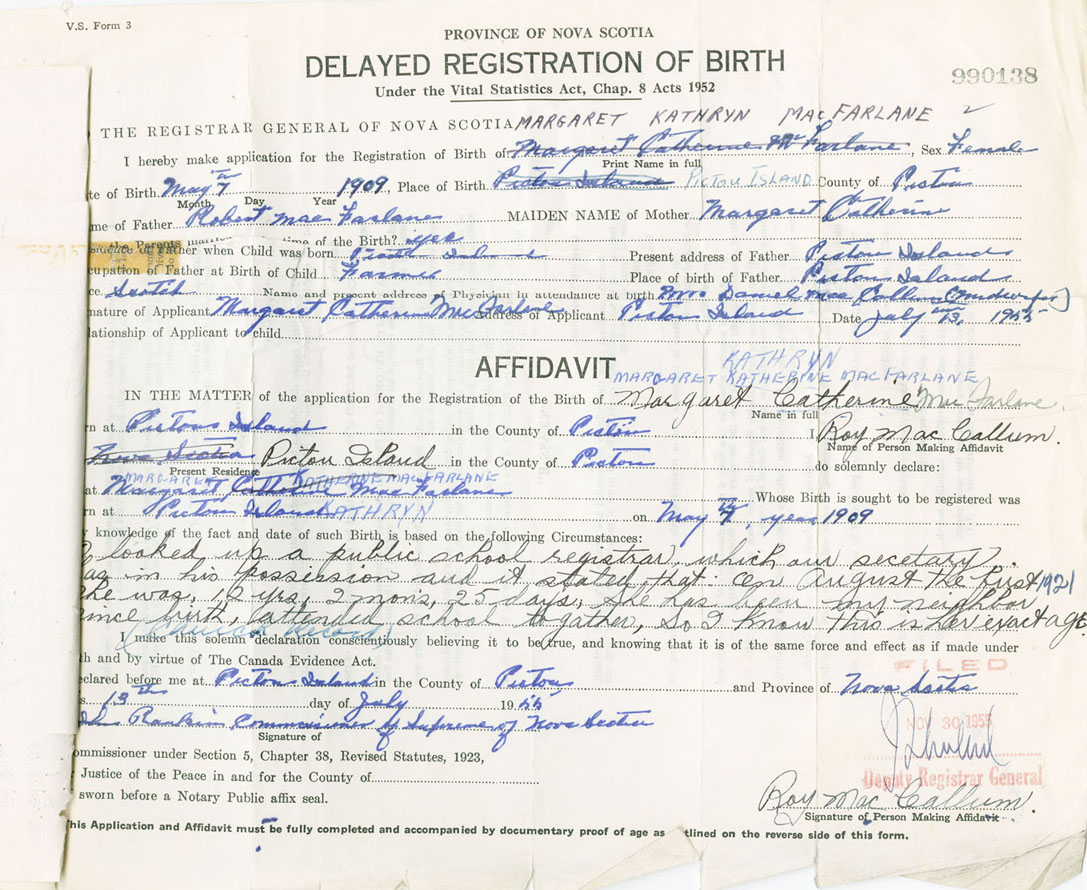 V.S. Form 3
PROVINCE OF NOVA SCOTIA
DELAYED REGISTRATION OF BIRTH
990138
Under the Vital Statistics Act, Chap. 8 Acts 1952
THE REGISTRAR GENERAL OF NOVA SCOTIA MARGARET KATHRYN MACFARLANE
I hereby make application for the Registration of Birth of Margaret Catherine Mc Farlane, Sex Female
Print Name in full
te of Birth May 7th 1909, Place of Birth Pictou Island PICTOU ISLAND County of Pictou
Month Day Year
me of Father Robert Mac Farlane MAIDEN NAME of Mother Margaret Catherine
the Parents time of the Birth? yes
Father when Child was born Pictou Island Present address of Father Pictou Island
cupation of Father at Birth of Child Farmer Place of birth of Father Pictou Island
ce Scotch Name and present address of Physician in attendance at birth Mrs Daniel Mac Callum (midwife)
nature of Applicant Margaret Catherine MacFarlane Address of Applicant Pictou Island Date July 13, 1955
lationship of Applicant to child
AFFIDAVIT
KATHRYN
MARGARET KATHERINE MACFARLANE
IN THE MATTER of the application for the Registration of the Birth of Margaret Catherine MacFarlane
Name in full
rn at Pictou Island in the County of Pictou I, Roy Mac Callum.
Name of Person Making Affidavit
Nova Scotia Pictou Island in the County of Pictou do solemnly declare:
Present Residence
MARGARET KATHERINE MACFARLANE
at Margaret Catherine MacFarlane Whose Birth is sought to be registered was
rn at Pictou Island KATHRYN on May 7th, year 1909
y knowledge of the fact and date of such Birth is based on the following Circumstances:
I looked up a public school registrar, which our secetary
as in his possession and it stated that: On August the first 1921
she was, 12 yrs, 2 mons, 25 days, She has been my neighbor
since birth, attended school together, so I know this is her exact age
I make this solemn declaration conscientiously believing it to be true, and knowing that it is of the same force and effect as if made under
th and by virtue of The Canada Evidence Act.
FILED
eclared before me at Pictou Island in the County of Pictou and Province of Nova Scotia
13th day of July 1955
Rankin Commissioner of Supreme of Nova Scotia
NOV 30 1955
Signature of
ommissioner under Section 5, Chapter 38, Revised Statutes, 1923,
Justice of the Peace in and for the County of
Deputy Registrar General
sworn before a Notary Public affix seal.
Roy Mac Callum.
Signature of Person Making Affidavit
his Application and Affidavit must be fully completed and accompanied by documentary proof of age as tlined on the reverse side of this form.